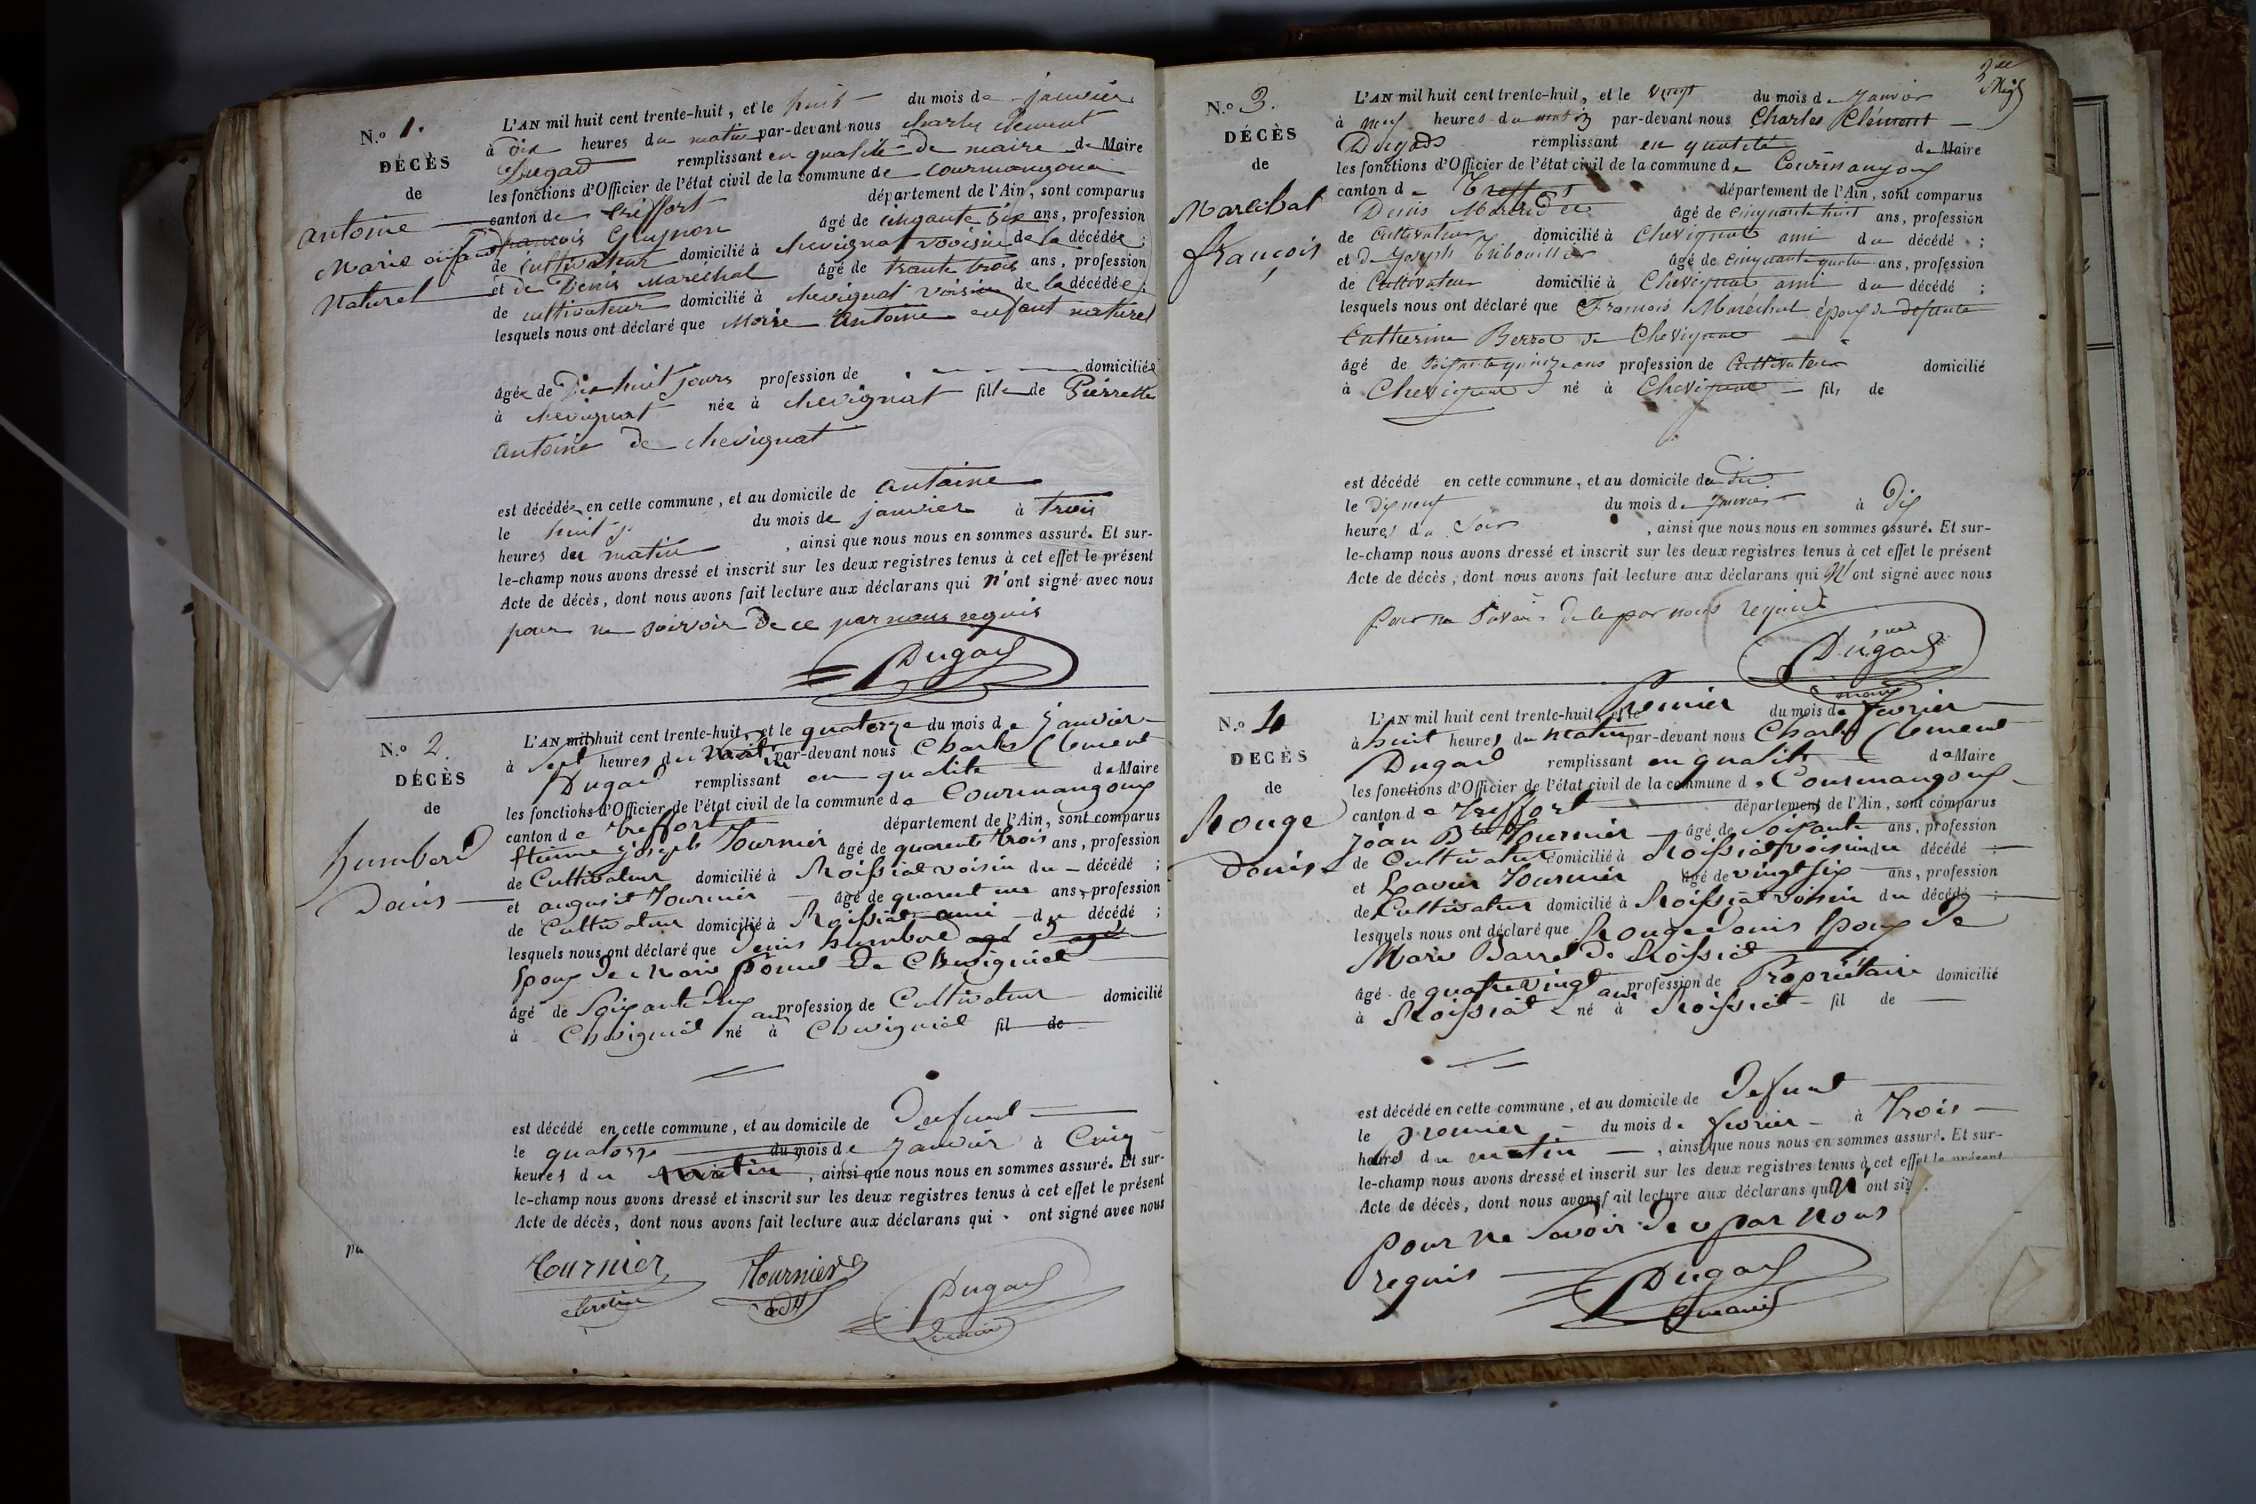 N.o 1.
DÉCÈS
de
antoine
Marie enfant
Naturel
L'AN mil huit cent trente-huit, et le huit du mois de janvier
à dix heures du matin par-devant nous charles clement
Dugad remplissant en qualité de maire de Maire
les fonctions d'Officier de l'état civil de la commune de courmangoux
canton de treffort département de l'Ain, sont comparus
francois Guynon âgé de cinqante six ans, profession
de cultivateur domicilié à chevignat voisin de la décédée;
et de Denis Maréchal âgé de trante trois ans, profession
de cultivateur domicilié à chevignat voisin de la décédée;
lesquels nous ont déclaré que Marie Antoine enfant naturel
âgée de Dix huit jours profession de domiciliée
à chevignat née à chevignat fille de Pierrette
antoine de chevignat
est décédée en cette commune, et au domicile de antoine
le huit du mois de janvier à trois
heures du matin, ainsi que nous nous en sommes assuré. Et sur-
le-champ nous avons dressé et inscrit sur les deux registres tenus à cet effet le présent
Acte de décès, dont nous avons fait lecture aux déclarans qui n'ont signé avec nous
pour ne savoir de ce par nous requis
Dugad
N.o 2.
DÉCÈS
de
humberd
Denis
L'AN mil huit cent trente-huit, et le quatorze du mois de janvier
à sept heures du matin par-devant nous Charles Clement
Dugad remplissant en qualité de Maire
les fonctions d'Officier de l'état civil de la commune de Courmangoux
canton de treffort département de l'Ain, sont comparus
Etienne joseph Tournier âgé de quarente trois ans, profession
de Cultivateur domicilié à Roissiat voisin du décédé;
et august Tournier âgé de quarent un ans, profession
de Cultivateur domicilié à Roissiat ami du décédé;
lesquels nous ont déclaré que Denis humberd
Epoux de Marie de Chevigniat
âgé de Soixante Deux ans profession de Cultivateur domicilié
à Chevigniat né à Chevigniat fil de
est décédé en cette commune, et au domicile de Defunt
le quatorze du mois de janvier à Cinq
heures du matin, ainsi que nous nous en sommes assuré. Et sur-
le-champ nous avons dressé et inscrit sur les deux registres tenus à cet effet le présent
Acte de décès, dont nous avons fait lecture aux déclarans qui ont signé avec nous
Tournier Tournier Dugad
N.o 3.
DÉCÈS
de
Marechal
françois
L'AN mil huit cent trente-huit, et le vingt du mois de Janvier
à neuf heures du matin par-devant nous Charles Clément
Dugad remplissant en qualité de Maire
les fonctions d'Officier de l'état civil de la commune de Courmangoux
canton de Treffort département de l'Ain, sont comparus
Denis Marechal âgé de cinquante huit ans, profession
de Cultivateur domicilié à Chevignat ami du décédé;
et de Joseph Tribouillier âgé de cinquante quatre ans, profession
de Cultivateur domicilié à Chevignat ami du décédé;
lesquels nous ont déclaré que François Maréchal époux de defunte
Catherine de Chevignat
âgé de Soixante quinze ans profession de Cultivateur domicilié
à Chevignat né à Chevignat fils de
est décédé en cette commune, et au domicile du
le Dixneuf du mois de Janvier à Dix
heures du Soir, ainsi que nous nous en sommes assuré. Et sur-
le-champ nous avons dressé et inscrit sur les deux registres tenus à cet effet le présent
Acte de décès, dont nous avons fait lecture aux déclarans qui N'ont signé avec nous
Pour ne Savoir de ce par nous requis
Dugad
maire
N.o 4
DÉCÈS
de
Rouge
Denis
L'AN mil huit cent trente-huit, et le Premier du mois de fevrier
à huit heures du matin par-devant nous Charles Clement
Dugad remplissant en qualité de Maire
les fonctions d'Officier de l'état civil de la commune de Courmangoux
canton de Treffort département de l'Ain, sont comparus
jean Bte Tournier âgé de Soixante ans, profession
de Cultivateur domicilié à Roissiat voisin du décédé;
et Xavier Tournier âgé de vingt six ans, profession
de Cultivateur domicilié à Roissiat voisin du décédé;
lesquels nous ont déclaré que Rouge Denis Epoux de
Marie Barret de Roissiat
âgé de quatrevingt ans profession de Propriétaire domicilié
à Roissiat né à Roissiat fil de
est décédé en cette commune, et au domicile de Defunt
le premier du mois de fevrier à Trois
heures du matin, ainsi que nous nous en sommes assuré. Et sur-
le-champ nous avons dressé et inscrit sur les deux registres tenus à cet effet le présent
Acte de décès, dont nous avons fait lecture aux déclarans qui N'ont sig
pour Ne Savoir De ce par Nous
requis
Dugad
maire